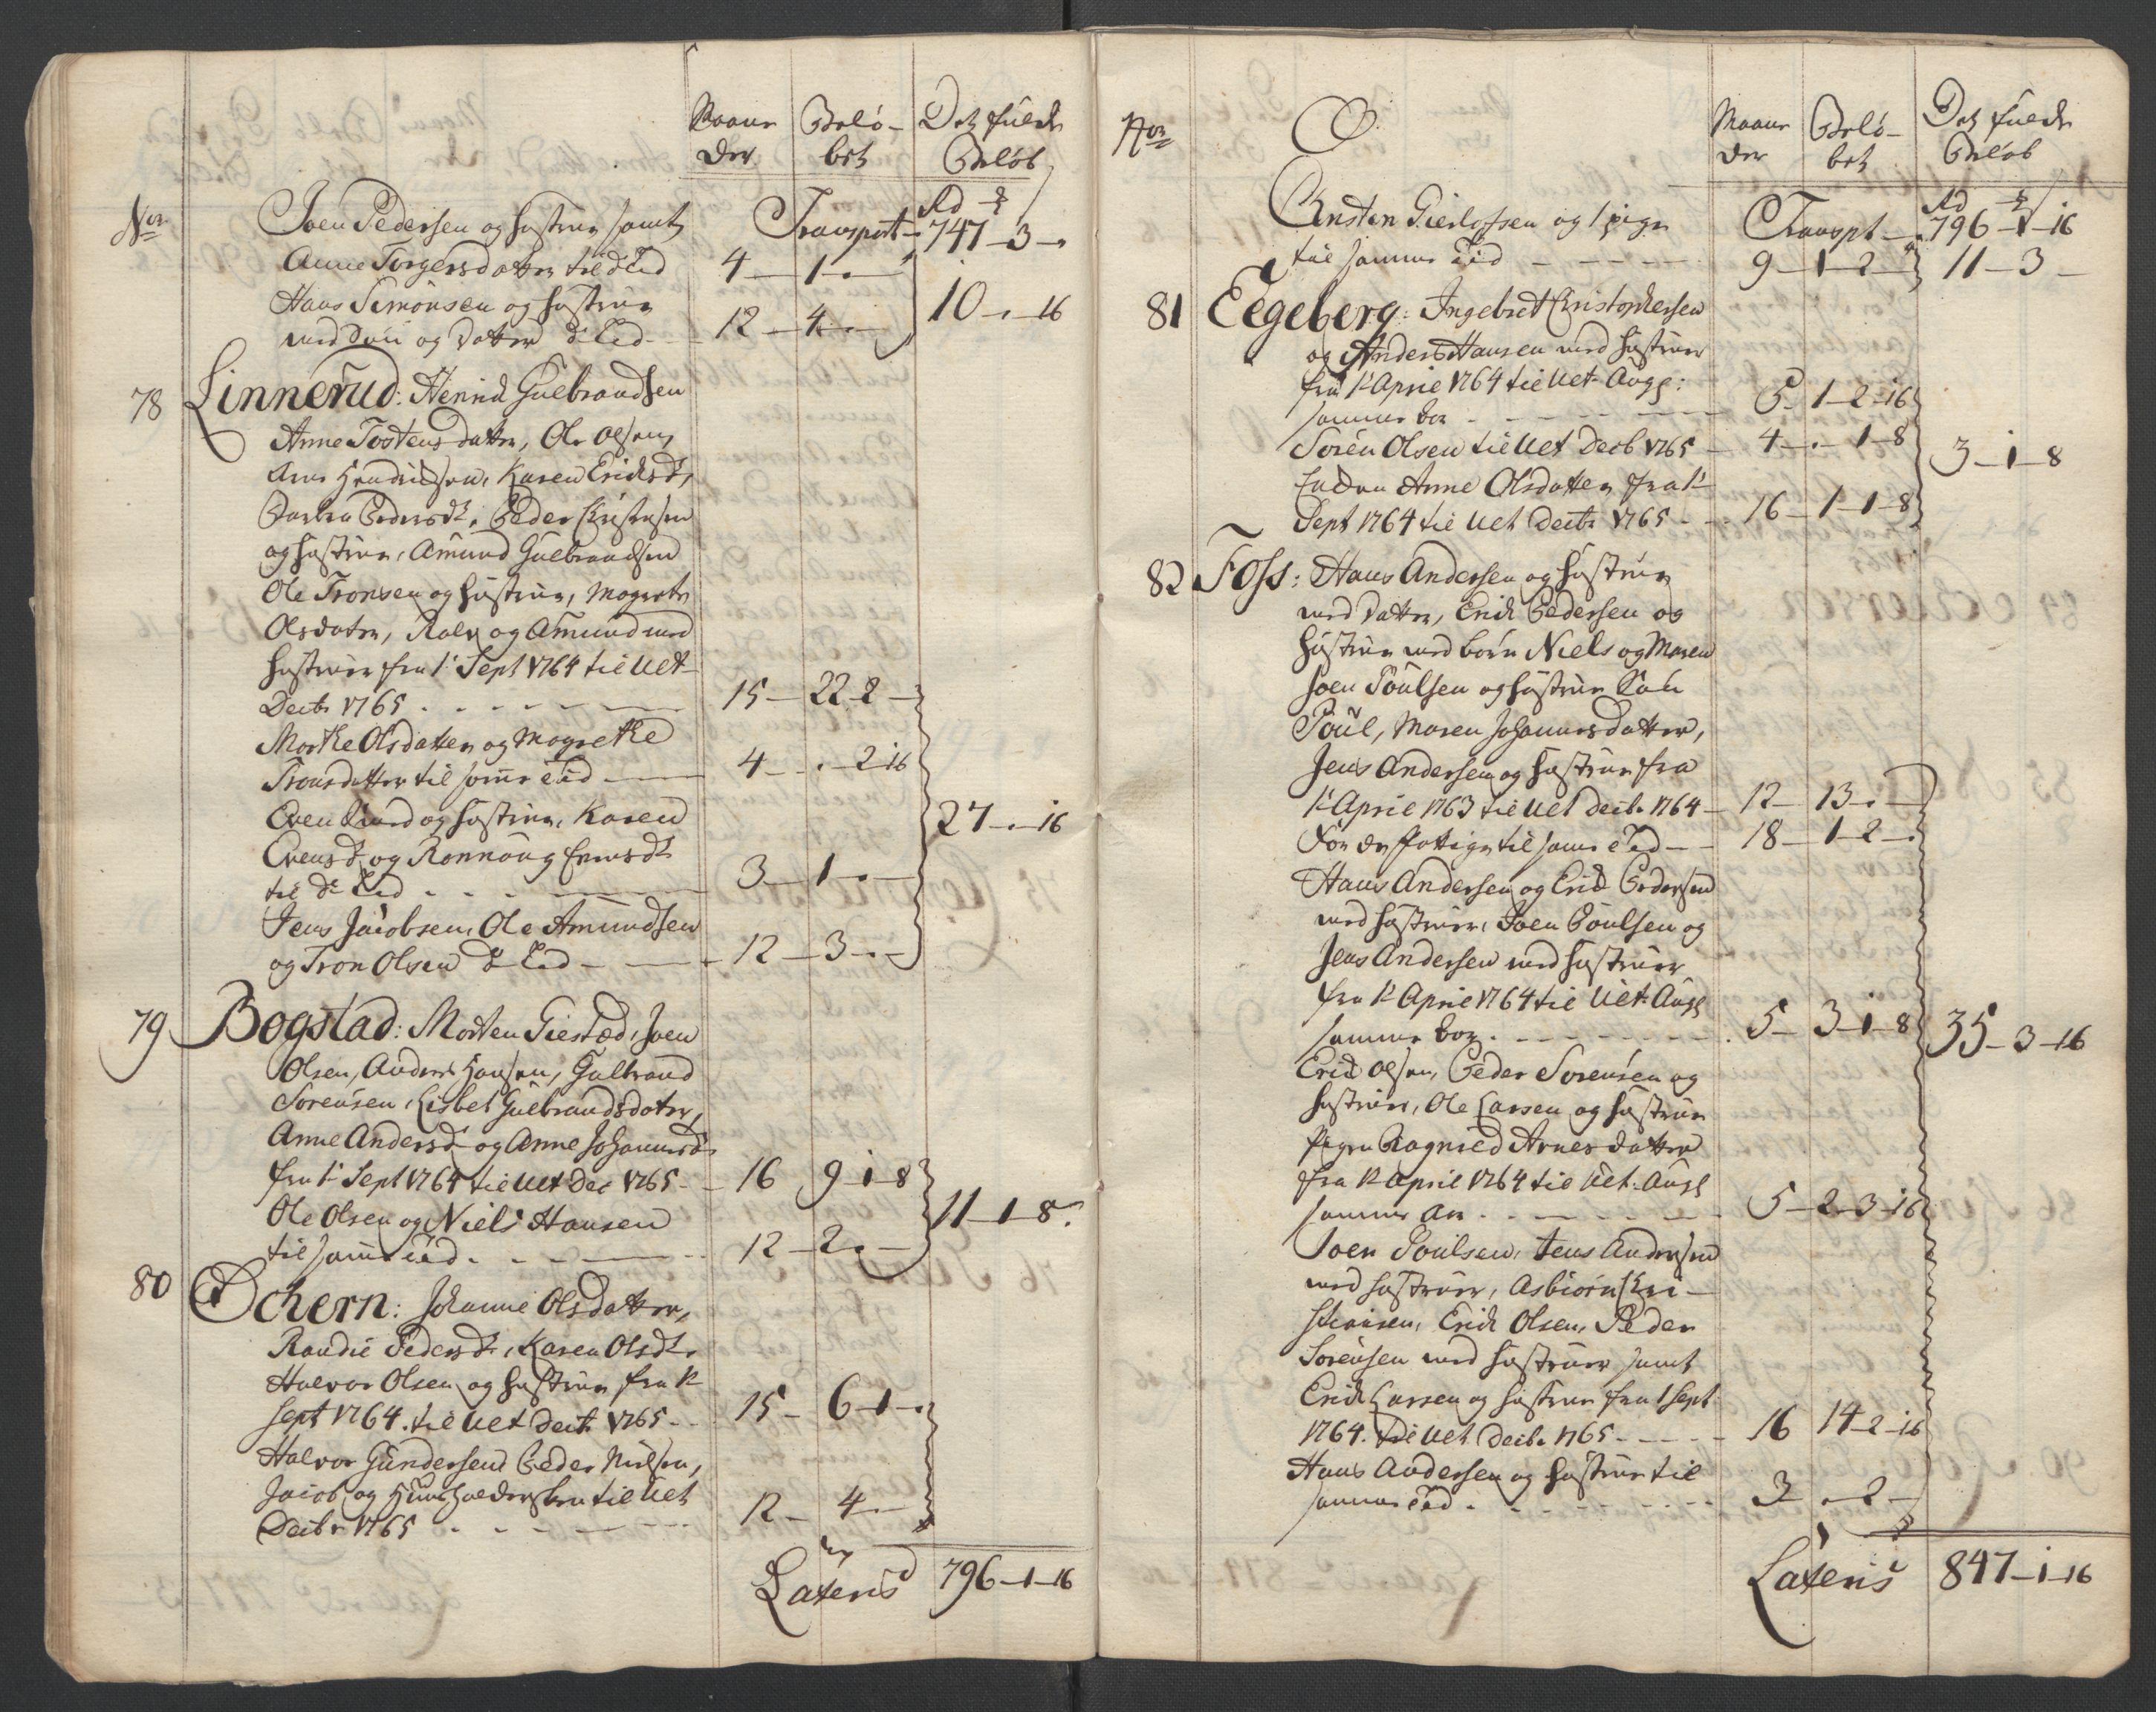 No
Maane Beløbet Det fulde
der bet Beløb
Joen Pedersen og hustrue samt Transport Rd 747-3-
Anne Torgersdatter til d Tid 4-1-
Hans Simonsen og hustrue 10-.-16
med Søn og Datter d Tid 12-4-
78 Linnerud: Henrich Gulbrandsen
Anne Tostensdatter, Ole Olsen,
Arne Hendrichsen, Karen Ericksdr
Barbra Pedersdr, Peder Christensen
og hustrue, Amund Gulbrandsen
Ole Tronsen og hustrue, Magrete
Olsdatter, Rolv og Amund med
hustruer fra 1 Sept 1764 til Ult
Decbr 1765 15-22-2-
Marthe Olsdatter og Magrethe
Tronsdatter til samme Tid 4-.-2-16
Even og hustrue, Karen 27-.-16
Evensdr og Ronnoug Evensdr
til d Tid 3-1-
Jens Jacobsen, Ole Amundsen
og Tron Olsen d Tid 12-3-.-
79 Bogstad: Morten Giestad, Joen
Olsen, Anders Hansen, Gulbrand
Sørensen, Lisbet Gulbrandsdatter,
Anne Andersdr og Anne Johannesdr
fra 1 Sept 1764 til Ult Dec 1765 16 9-1-8
Ole Olsen og Niels Hansen 11-1-8
til samme Tid 12-2-
80 Ochern: Johanne Olsdatter,
Randie Pedersdr, Karen Olsdr
Halvor Olsen og hustrue fra 1
Sept 1764 til Ult Decbr 1765 15-6-1-
Halvor Gundersen Peder Nielsen,
Jacob og til Ult
Decbr 1765 12-4-
Lateris 796-1-16
No
Maane Beløbet Det fulde
der bet Beløb
Transpt Rd 796-1-16
Christen Gierlofsen og 1 pige
til samme Tid 9-1-2- 11-3-
81 Eegeberg: Ingebret Christophersen
og Anders Hansen med hustruer
fra 1 April 1764 til Ult Augs:
samme Aar 5-1-2-16
Søren Olsen til Ult Decb 1765 4-.-1-8 3-1-8
Enken Anne Olsdatter fra 1
Sept 1764 til Ult Decbr 1765 16-1-1-8
82 Foss: Hans Andersen og hustrue
med Datter, Erich Pedersen og
hustrue med børn Niels og Maren
Joen Poulsen og hustrue Søn
Poul, Maren Johannesdatter,
Jens Andersen og hustrue fra
1 April 1763 til Ult Decbr 1764 12-13-.-
For de fattige til samme Tid 18-1-2-
Hans Andersen og Erich Pedersen
med hustruer, Joen Poulsen og
Jens Andersen med hustruer
fra 1 April 1764 til Ult. Augs
samme Aar 5-3-1-8 35-3-16
Erich Olsen, Peder Sørensen og
hustruer, Ole Larsen og hustrue
Pigen Ragnild Arnesdatter
fra 1 April 1764 til Ult. Augs
samme Aar 5-2-3-16
Joen Poulsen, Jens Andersen
med hustruer, Asbiørn Chri-
stiansen, Erich Olsen, Peder
Sørensen med hustruer samt
Erich Larsen og hustrue fra 1 Sept
1764. til Ult Decbr 1765 16 14-2-16
Hans Andersen og hustrue til
samme Tid 3-.-2-
Lateris 847-1-16